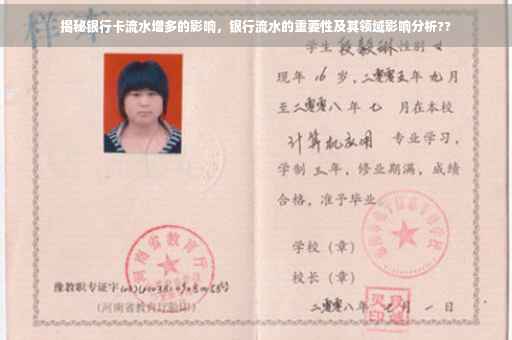 揭秘银行卡流水增多的影响，银行流水的重要性及其领域影响分析??
样本
学生 段毅琳 性别 女
现年 16 岁，二零零五年 九月
至二零零八年 七 月在本校
计算机应用 专业学习，
学制 三年，修业期满，成绩
合格，准予毕业
学校（章）
校长（章）
二零零八年 七 月 一 日
河南省教育厅
豫教职专证字
（河南省教育厅验印）